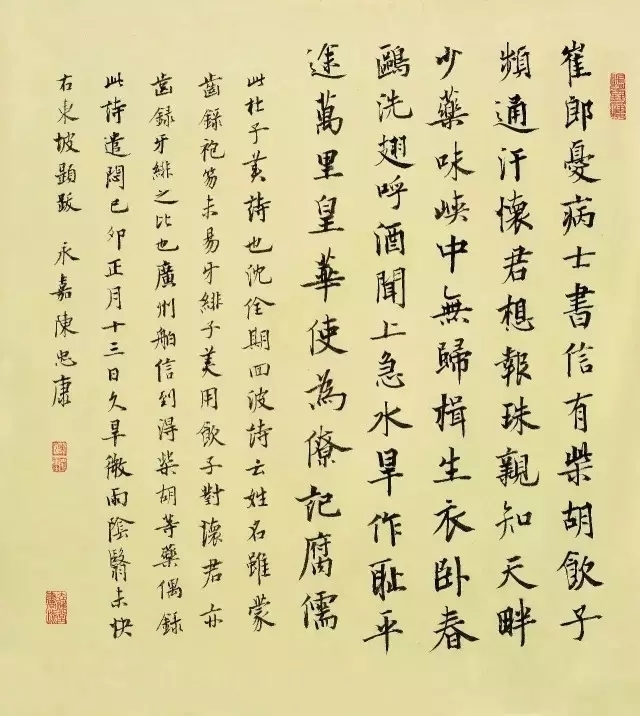 崔郎憂病士書信有柴胡飲子
頻通汗懷君想報珠親知天畔
少藥味峽中無歸楫生衣卧春
鷗洗翅呼酒聞上急水旱作耻平
途萬里皇華使為僚記腐儒
此杜子美詩也沈佺期回波詩云姓名雖蒙
齒錄袍笏未易牙緋子美用飲子對懷君亦
齒錄牙緋之比也廣州舶信到得柴胡等藥偶錄
此詩遣悶已卯正月十三日久旱微雨陰翳未快
右東坡題跋 永嘉陳忠康